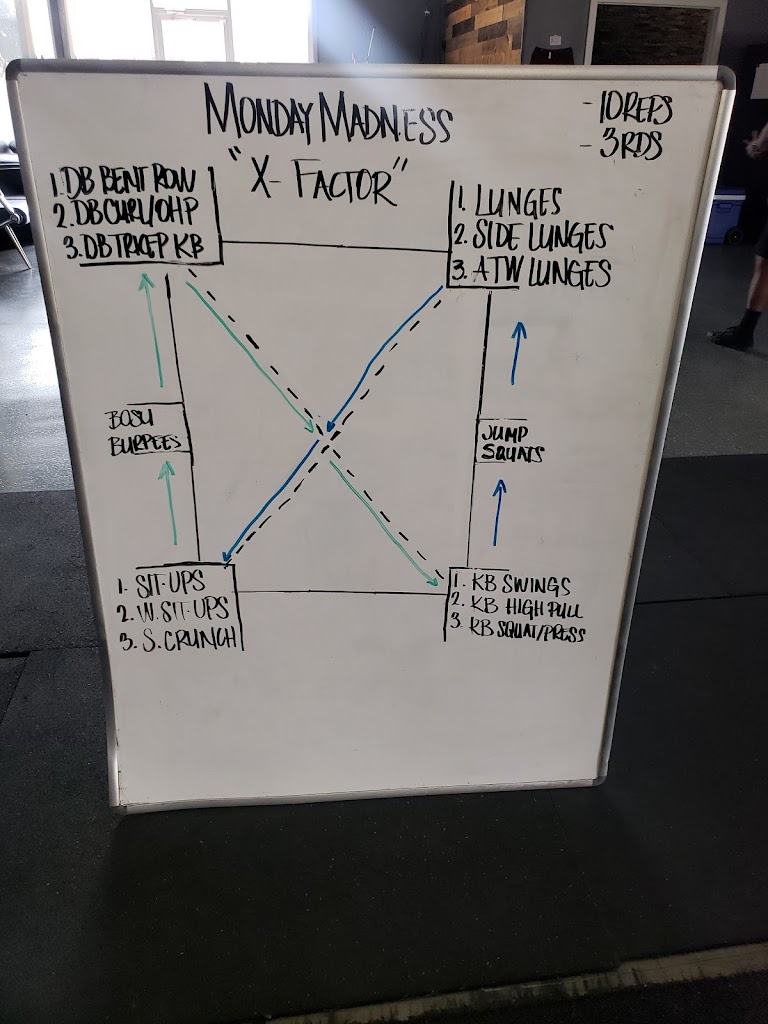 MONDAY MADNESS
"X-FACTOR"
- 10 REPS
- 3 RDS
1. DB BENT ROW
2. DB CURL/OHP
3. DB TRICEP KB
1. LUNGES
2. SIDE LUNGES
3. ATW LUNGES
BOSU
BURPEES
JUMP
SQUATS
1. SIT-UPS
2. W. SIT-UPS
3. S. CRUNCH
1. KB SWINGS
2. KB HIGH PULL
3. KB SQUAT/PRESS